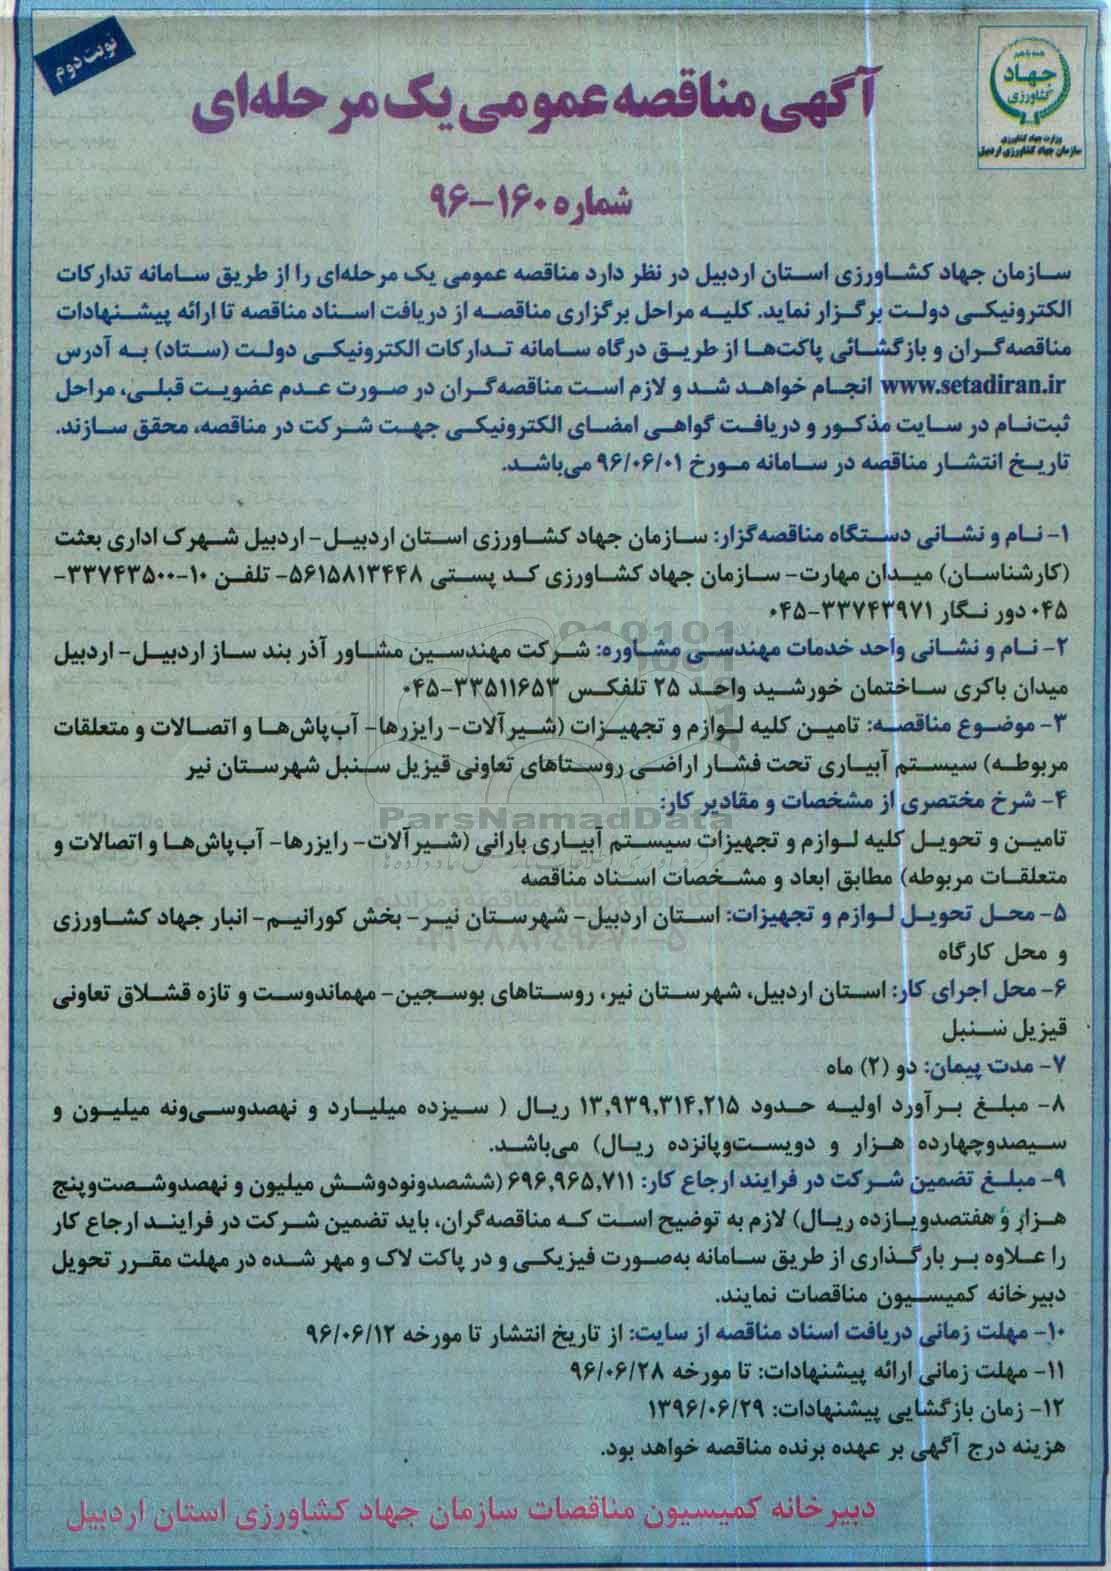 نوبت دوم
همه با هم
جهاد
کشاورزی
وزارت جهاد کشاورزی
سازمان جهاد کشاورزی اردبیل
آگهی مناقصه عمومی یک مرحله‌ای
شماره ۱۶۰-۹۶
سازمان جهاد کشاورزی استان اردبیل در نظر دارد مناقصه عمومی یک مرحله‌ای را از طریق سامانه تدارکات
الکترونیکی دولت برگزار نماید. کلیه مراحل برگزاری مناقصه از دریافت اسناد مناقصه تا ارائه پیشنهادات
مناقصه‌گران و بازگشائی پاکت‌ها از طریق درگاه سامانه تدارکات الکترونیکی دولت (ستاد) به آدرس
www.setadiran.ir انجام خواهد شد و لازم است مناقصه‌گران در صورت عدم عضویت قبلی، مراحل
ثبت‌نام در سایت مذکور و دریافت گواهی امضای الکترونیکی جهت شرکت در مناقصه، محقق سازند.
تاریخ انتشار مناقصه در سامانه مورخ ۹۶/۰۶/۰۱ می‌باشد.
۱- نام و نشانی دستگاه مناقصه‌گزار: سازمان جهاد کشاورزی استان اردبیل- اردبیل شهرک اداری بعثت
(کارشناسان) میدان مهارت- سازمان جهاد کشاورزی کد پستی ۵۶۱۵۸۱۳۴۴۸- تلفن ۱۰-۳۳۷۴۳۵۰۰-
۰۴۵ دور نگار ۳۳۷۴۳۹۷۱-۰۴۵
۲- نام و نشانی واحد خدمات مهندسی مشاوره: شرکت مهندسین مشاور آذر بند ساز اردبیل- اردبیل
میدان باکری ساختمان خورشید واحد ۲۵ تلفکس ۳۳۵۱۱۶۵۳-۰۴۵
۳- موضوع مناقصه: تامین کلیه لوازم و تجهیزات (شیرآلات- رایزرها- آب‌پاش‌ها و اتصالات و متعلقات
مربوطه) سیستم آبیاری تحت فشار اراضی روستاهای تعاونی قیزیل سنبل شهرستان نیر
۴- شرح مختصری از مشخصات و مقادیر کار:
تامین و تحویل کلیه لوازم و تجهیزات سیستم آبیاری بارانی (شیرآلات- رایزرها- آب‌پاش‌ها و اتصالات و
متعلقات مربوطه) مطابق ابعاد و مشخصات اسناد مناقصه
۵- محل تحویل لوازم و تجهیزات: استان اردبیل- شهرستان نیر- بخش کورائیم- انبار جهاد کشاورزی
و محل کارگاه
۶- محل اجرای کار: استان اردبیل، شهرستان نیر، روستاهای بوسجین- مهماندوست و تازه قشلاق تعاونی
قیزیل سنبل
۷- مدت پیمان: دو (۲) ماه
۸- مبلغ برآورد اولیه حدود ۱۳,۹۳۹,۳۱۴,۲۱۵ ریال ( سیزده میلیارد و نهصدوسی‌ونه میلیون و
سیصدوچهارده هزار و دویست‌وپانزده ریال) می‌باشد.
۹- مبلغ تضمین شرکت در فرایند ارجاع کار: ۶۹۶,۹۶۵,۷۱۱ (ششصدونودوشش میلیون و نهصدوشصت‌وپنج
هزار و هفتصدویازده ریال) لازم به توضیح است که مناقصه‌گران، باید تضمین شرکت در فرایند ارجاع کار
را علاوه بر بارگذاری از طریق سامانه به‌صورت فیزیکی و در پاکت لاک و مهر شده در مهلت مقرر تحویل
دبیرخانه کمیسیون مناقصات نمایند.
۱۰- مهلت زمانی دریافت اسناد مناقصه از سایت: از تاریخ انتشار تا مورخه ۹۶/۰۶/۱۲
۱۱- مهلت زمانی ارائه پیشنهادات: تا مورخه ۹۶/۰۶/۲۸
۱۲- زمان بازگشایی پیشنهادات: ۱۳۹۶/۰۶/۲۹
هزینه درج آگهی بر عهده برنده مناقصه خواهد بود.
دبیرخانه کمیسیون مناقصات سازمان جهاد کشاورزی استان اردبیل
ParsNamadData
۰۲۱-۸۸۳۴۹۶۷۰-۵